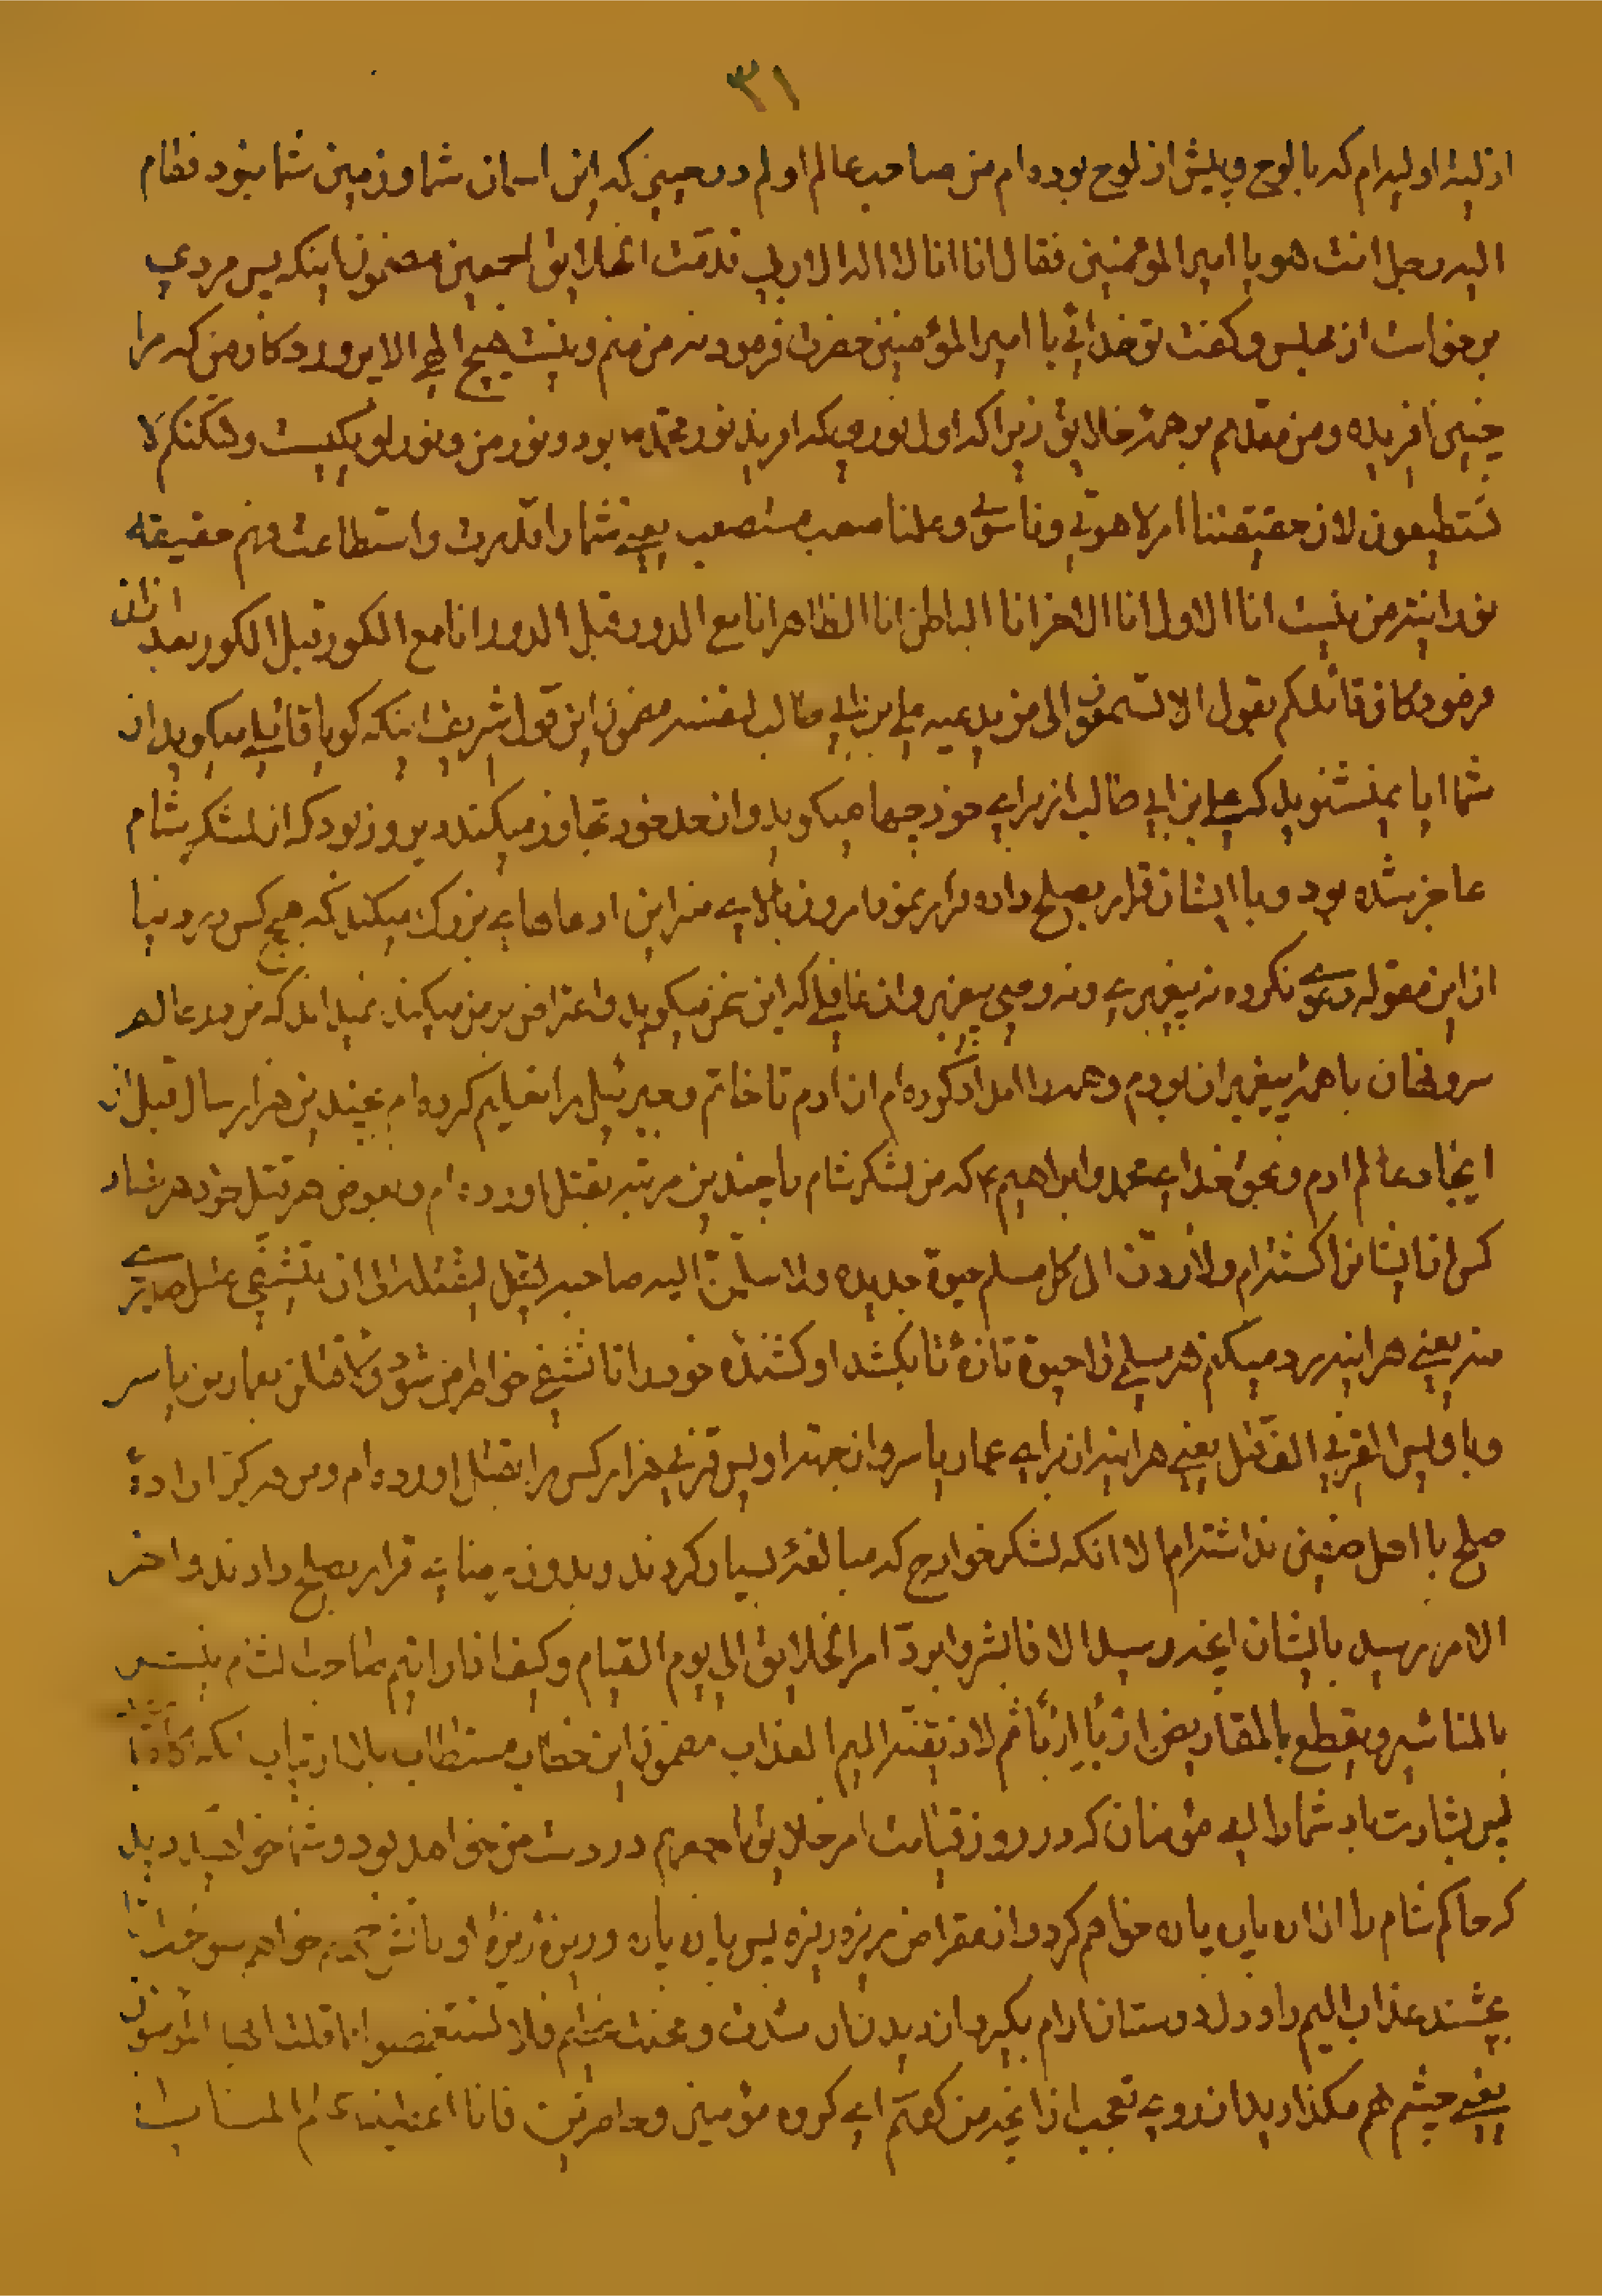 ٣١
ازلیة اولیه ام که با لوح و پیش از لوح بوده ام من صاحب عالم اولم در حینی که این اسمان شما و زمین شما نبود فقام
الیه رجل انت هو یا امیر المؤمنین فقال انا انا لا اله الا الله ربی الخلایق اجمعین مضمون اینکه پس مردی
برخواست از مجلس و کفت تو خدائی یا امیر المؤمنین حضرت فرمود نه من منم و نیست هیچ الهی الا پروردکار من که مرا
چنین افریده و من مقدم بر همه خلایق زیرا که اول نوریکه افرید نور محمد بود و نور من و نور او یکیست ولکنکم لا
تستطیعون لان حقیقتنا امر لاهوتی و ناسوتی و علمنا صعب مستصعب یعنی شما را قدرت و استطاعت فهم حقیقه
نورانیت من نیست انا الاول انا الاخر انا الباطن انا الظاهر انا مع الدور قبل الدور انا مع الکور قبل الکور بعد ازان
فرمود کان قائلکم یقول الا تسمعون الی من یدعیه علی بن ابی طالب لنفسه مضمون این قول شریف اینکه کویا قائلی میکوید از
شما ایا نمیشنوید که علی بن ابی طالب از برای خود چها میکوید و از حد خود تجاوز میکند دیروز بود که از لشکر شام
عاجز شده بود و با ایشان قرار بصلح داده قرار نمود امروز بالای منبر این ادعاهای بزرک میکند که هیچ کس در دنیا
از این مقوله دعوی نکرده نه پیغمبری و نه وصی پیغمبر و ان غافلی که این سخن میکوید و اعتراض بر من میکند نمیداند که من در عالم
سر و نهان با همه پیغمبران بودم و همه را امداد کرده ام از ادم تا خاتم و جبرئیل را تعلیم کرده ام چندین هزار سال قبل از
ایجاد عالم ادم و بحق خدای محمد و ابراهیم که من لشکر شام را چندین مرتبه بقتل اورده ام و بعوض هر قتیل خود هفتاد
کس از ایشانرا کشته ام و لاردن الی کل مسلم حیوة جدیده و لاسلمن الیه صاحبه لیقتله الی ان یتشفی غلیل صدری
منه یعنی هر اینه رد میکنم هر مسلمی را حیوة تازه تا بکشد او کشنده خود را تا تشفی خواطر من شود و لاقتلن بعمار بن یاسر
و باویس القرنی الف قتیل یعنی هر اینه از برای عمار یاسر و از جهة اویس قرنی هزار کس را بقتل اورده ام و من هرکز اراده
صلح با اهل صفین نداشته ام الا انکه لشکر خوارج که مبالغه بسیار کردند و بدون رضای من قرار بصلح دادند و اخر
الامر رسید بایشان انچه رسید الا فابشروا یرد امر الخلایق الی یوم القیام و کیف اذا رایتم صاحب الشام ینشر
بالمناشیر و یقطع بالمقاریض اربا اربا ثم لاذیقنه الیم العذاب مضمون این خطاب مستطاب بلا ارتیاب انکه
پس بشارت باد شما را ای مؤمنان که در روز قیامت امر خلایق در دست من خواهد بود و شما خواهید دید
که حاکم شام را از اره پاره پاره خواهم کرد و از مقراض ریزه ریزه پس پاره پاره و ریزه ریزه او باتش خواهم سوخت تا
بچشند عذاب الیم را و دل دوستان ارام بکیرد از دیدن ان شدت و محنت فلا تستعصوا انا قلت ایها المؤمنون
یعنی چشم هم مکذارید از روی تعجب از انچه من کفتم ای کروه مؤمنین و حاضرین فانا اعطینا علم المنایا